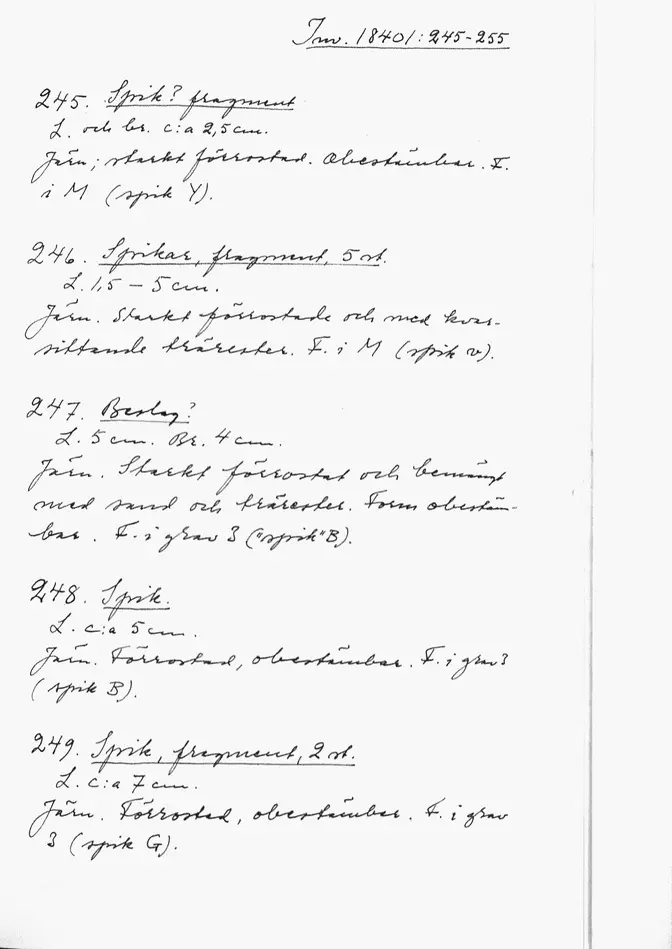 Inv. 18401:245-255
245. Spik? fragment
L. och br. c:a 2,5 cm.
Järn; starkt förrostad. Obestämbar. F.
i M (spik Y).
246. Spikar, fragment, 5 st.
L. 1,5 - 5 cm.
Järn. Starkt förrostade och med kvar-
sittande trärester. F. i M (spik v).
247. Beslag?
L. 5 cm. Br. 4 cm.
Järn. Starkt förrostat och bemängt
med sand och trärester. Form obestäm-
bar. F. i grav 3 ("spik" B).
248. Spik.
L. c:a 5 cm.
Järn. Förrostad, obestämbar. F. i grav 3
(spik B).
249. Spik, fragment, 2 st.
L. c:a 7 cm.
Järn. Förrostad, obestämbar. F. i grav
3 (spik G).